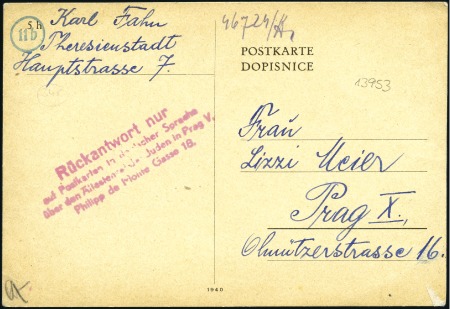 5 h
11b
Karl Fahn
Theresienstadt
Hauptstrasse 7.
46724/A
POSTKARTE
DOPISNICE
13953
Rückantwort nur
auf Postkarten in deutscher Sprache
über den Ältesten der Juden in Prag V.
Philipp de Monte Gasse 18.
Frau
Lizzi Meier
Prag X.,
Olmützerstrasse 16.
1940